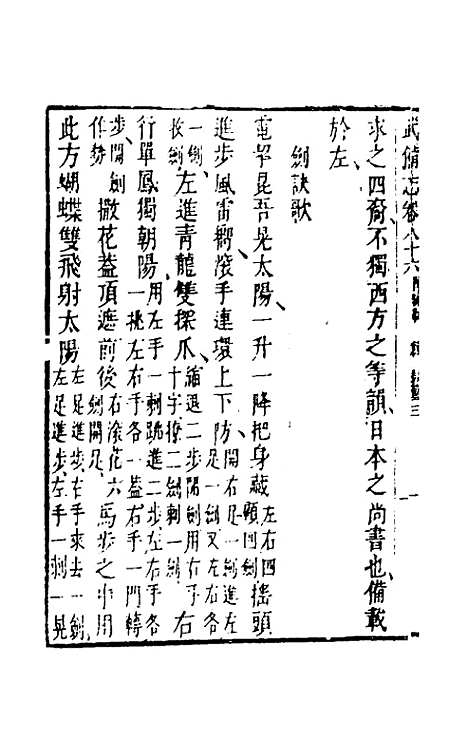 武備志卷八十六
求之四裔不獨西方之等韻日本之尚書也備載
於左
劍訣歌
電挈昆吾晃太陽一升一降把身藏左右四顧四劍搖頭
進步風雷嚮滾手連環上下防開右足一劍進左足一劍又左右各
一劍收劍左進青龍雙探爪縮退二步開劍用右手十字撩二劍刺一劍右
行單鳳獨朝陽用左手一刺跳進二步左右手各一挑左右手各一蓋右手一門轉
步開劍作勢撒花蓋頂遮前後右滾花六劍開足馬步之中用
此方蝴蝶雙飛射太陽左足進步右手來去一劍左足進步左手一刺一晃